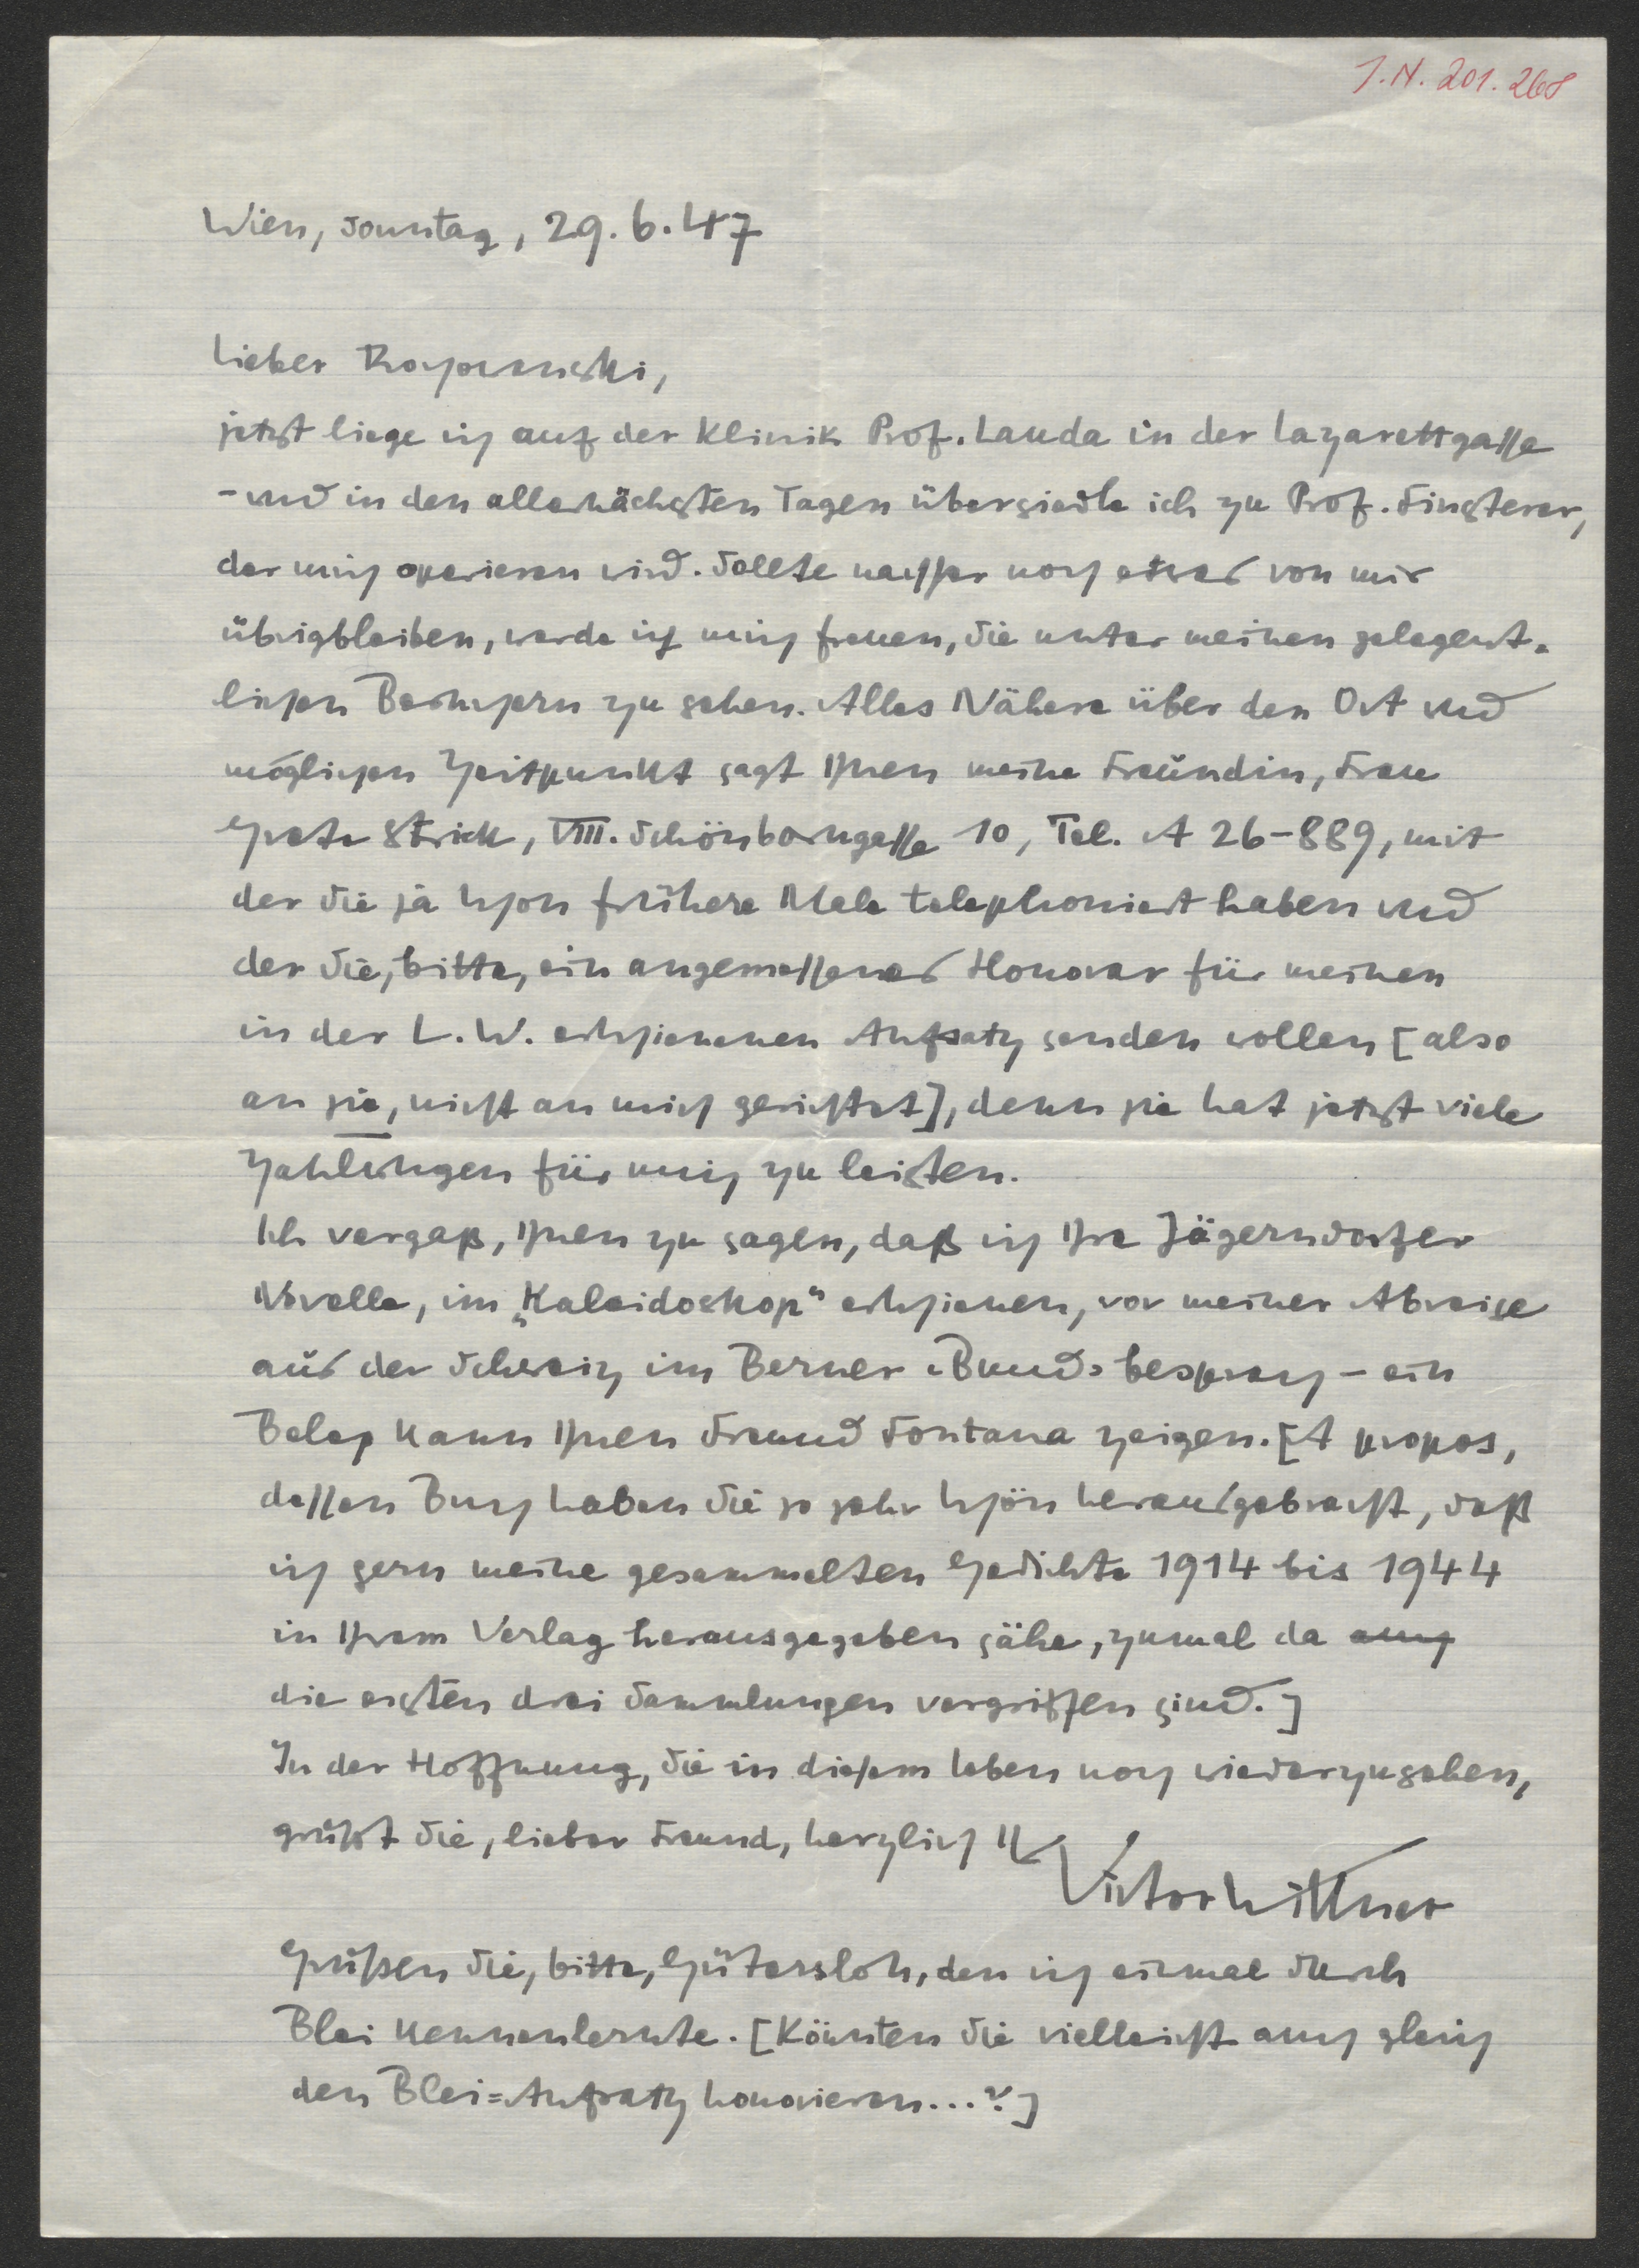 J.N. 201.268
Wien, Sonntag, 29.6.47
Lieber
jetzt liege ich auf der Klinik Prof. Lauda in der Lazarettgasse
- und in den allernächsten Tagen übersiedle ich zu Prof. Finsterer,
der mich operieren wird. Sollte nachher noch etwas von mir
übrigbleiben, werde ich mich freuen, Sie unter meinen gelegent-
lichen Besuchern zu sehen. Alles Nähere über den Ort und
möglichen Zeitpunkt sagt Ihnen meine Freundin, Frau
Grete Strick, VIII. Schönborngasse 10, Tel. A 26-889, mit
der Sie ja schon frühere Male telephoniert haben und
der Sie, bitte, ein angemessenes Honorar für meinen
in der L.W. erschienenen Aufsatz senden wollen [also
an sie, nicht an mich gerichtet], denn sie hat jetzt viele
Zahlungen für mich zu leisten.
Ich vergaß, Ihnen zu sagen, daß ich Ihre Jägerndorfer
Novelle, im „Kaleidoskop“ erschienen, vor meiner Abreise
aus der Schweiz im Berner ‹Bund› besprach - ein
Beleg kann Ihnen Freund Fontana zeigen. [A propos,
dessen Buch haben Sie so sehr schön herausgebracht, daß
ich gern meine gesammelten Gedichte 1914 bis 1944
in Ihrem Verlag herausgegeben sähe, zumal da auch
die ersten drei Sammlungen vergriffen sind.]
In der Hoffnung, Sie in diesem Leben noch wiederzusehen,
grüßt Sie, lieber Freund, herzlich Ihr
Victor Wittner
Grüßen Sie, bitte, Gütersloh, den ich einmal durch
Blei kennenlernte. [Könnten Sie vielleicht auch gleich
den Blei=Aufsatz honorieren...?]